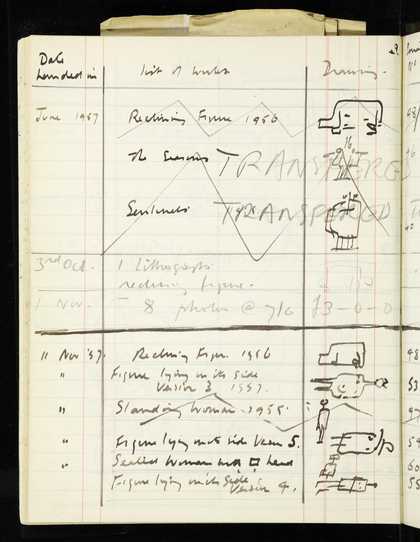 Date handed in
list of works
Drawing.
June 1957 Reclining Figure 1956
The Seasons TRANSFERED
16
Sentinels 1956 TRANSFERED
3rd Oct. 1 Lithograph
reclining figure.
1 Nov. 8 photos @ 7/6 £3-0-0
11 Nov '57. Reclining Figure 1956
" Figure lying on its side
Version 3 1957.
" Standing Woman 1955.
" Figure lying on its side Version 5.
" Seated Woman with head
" Figure lying on its side
Version 4.